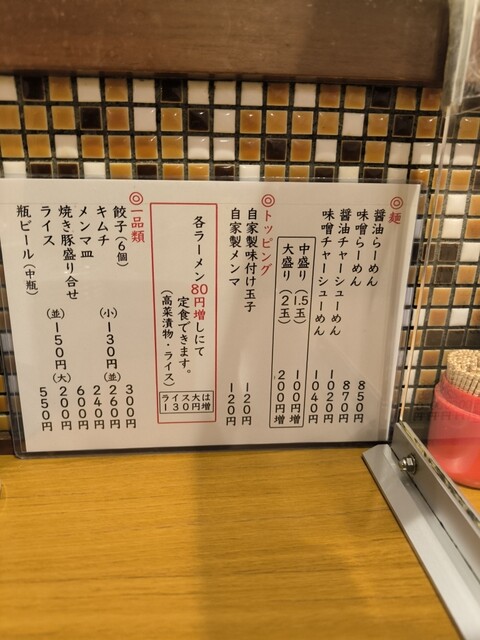 ◎麺
醤油らーめん 850円
味噌らーめん 870円
醤油チャーシューめん 1020円
味噌チャーシューめん 1040円
中盛り(1.5玉) 100円増
大盛り(2玉) 200円増
◎トッピング
自家製味付け玉子 120円
自家製メンマ 120円
各ラーメン80円増しにて
定食できます。
(高菜漬物・ライス)
ライス大は
130円増
◎一品類
餃子(6個) 300円
キムチ (小)130円 (並)260円
メンマ皿 240円
焼き豚盛り合せ 600円
ライス (並)150円 (大)200円
瓶ビール(中瓶) 550円